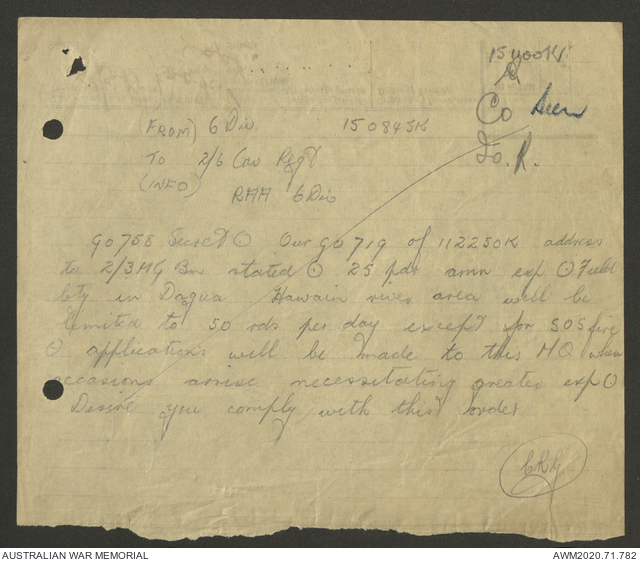 15 1400K
Co Seen
Io. R.
(FROM) 6 Div 150845K
To 2/6 Cav Regt
(INFO) RAA 6 Div
GO758 Secret ⊙ Our GO719 of 112250K address
to 2/3 MG Bn stated ⊙ 25 pdr amn exp ⊙ Field
bty in Dagua Hawain river area will be
limited to 50 rds per day except for SOS fire
⊙ applications will be made to this HQ when
occasions arise necessitating greater exp ⊙
Desire you comply with this order
AUSTRALIAN WAR MEMORIAL
AWM2020.71.782